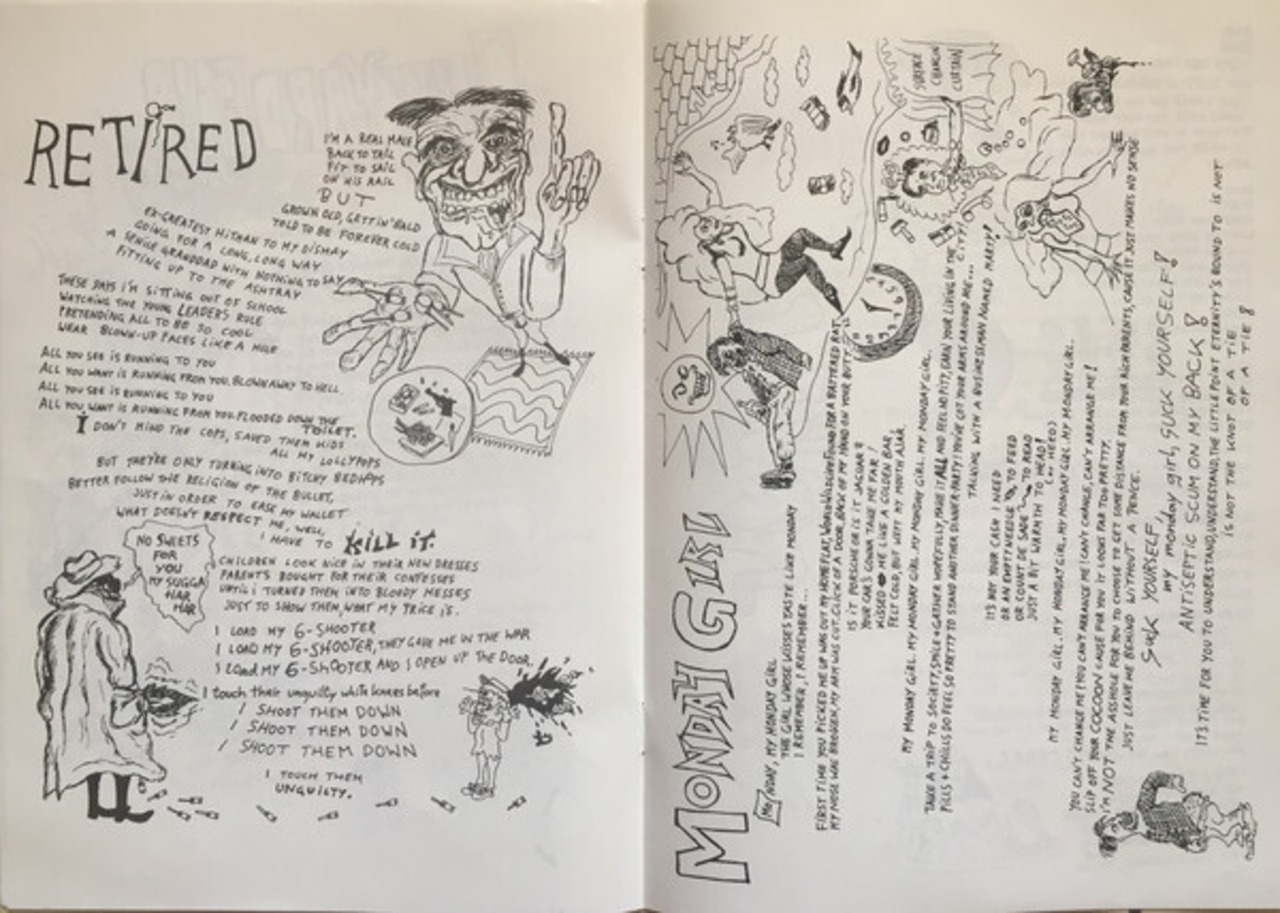 RETIRED
I'M A REAL MALE
BACK TO TAIL
FIT TO SAIL
ON HIS RAIL
BUT
GROWN OLD, GETTIN' BALD
TOLD TO BE FOREVER COLD
EX-GREATEST HITMAN TO MY DISMAY
GOING FOR A LONG, LONG WAY
A SENILE GRANDDAD WITH NOTHING TO SAY
FITTING UP TO THE ASHTRAY
THESE DAYS I'M SITTING OUT OF SCHOOL
WATCHING THE YOUNG LEADERS RULE
PRETENDING ALL TO BE SO COOL
WEAR BLOWN-UP FACES LIKE A MULE
ALL YOU SEE IS RUNNING TO YOU
ALL YOU WANT IS RUNNING FROM YOU. BLOWN AWAY TO HELL.
ALL YOU SEE IS RUNNING TO YOU
ALL YOU WANT IS RUNNING FROM YOU. FLOODED DOWN THE TOILET.
I DON'T MIND THE COPS, SAVED THEM KIDS
ALL MY LOLLYPOPS
BUT THEY'RE ONLY TURNING INTO BITCHY BEDHOPS
BETTER FOLLOW THE RELIGION OF THE BULLET,
JUST IN ORDER TO EASE MY WALLET
WHAT DOESN'T RESPECT ME, WELL,
I HAVE TO KILL IT.
NO SWEETS
FOR
YOU
MY SUGGA
HAR
HAR
CHILDREN LOOK NICE IN THEIR NEW DRESSES
PARENTS BOUGHT FOR THEIR CONFESSES
UNTIL I TURNED THEM INTO BLOODY MESSES
JUST TO SHOW THEM, WHAT MY PRICE IS.
I LOAD MY 6-SHOOTER
I LOAD MY 6-SHOOTER, THEY GAVE ME IN THE WAR
I LOAD MY 6-SHOOTER AND I OPEN UP THE DOOR.
I touch their unguilty white knees before
I SHOOT THEM DOWN
I SHOOT THEM DOWN
I SHOOT THEM DOWN
I TOUCH THEM
UNGUILTY.
MONDAY GIRL
MY MONDAY GIRL
THE GIRL WHOSE KISSES TASTE LIKE MONDAY
I REMEMBER, I REMEMBER...
FIRST TIME YOU PICKED ME UP WAS OUT MY HOME FLAT, WORLD WILDLIFE FOUND FOR A BATTERED RAT
MY NOSE WAS BROKEN, MY ARM WAS CUT. CLICK OF A DOOR, BACK OF MY HAND ON YOUR BUTT
IS IT PORSCHE OR IS IT JAGUAR?
YOUR CAR'S GONNA TAKE ME FAR!
KISSED ME LIKE A GOLDEN BAR,
FELT COLD, BUT KEPT MY MOUTH AJAR.
MY MONDAY GIRL. MY MONDAY GIRL. MY MONDAY GIRL. MY MONDAY GIRL.
TAKE A TRIP TO SOCIETY, SMILE & GATHER HOPEFULLY, TAKE IT ALL AND FEEL NO PITY, EARN YOUR LIVING IN THE CITY!
PILLS & CHILLS DO FEEL SO PRETTY TO STAND ANOTHER DINNER-PARTY! YOU'VE GOT YOUR ARMS AROUND ME...
TALKING WITH A BUSINESSMAN NAMED MARY?
IT'S NOT YOUR CASH I NEED
OR AN EMPTY NEEDLE TO FEED
OR COUNT DE SADE TO READ
JUST A BIT WARMTH TO HEAD!
(OR HEED)
MY MONDAY GIRL. MY MONDAY GIRL. MY MONDAY GIRL. MY MONDAY GIRL.
YOU CAN'T CHANGE ME! YOU CAN'T ARRANGE ME! CAN'T CHANGE, CAN'T ARRANGE ME!
SLIP OFF YOUR COCOON CAUSE FOR YOU IT LOOKS FAR TOO PRETTY.
I'M NOT THE ASSHOLE FOR YOU TO CHOOSE TO GET SOME DISTANCE FROM YOUR RICH PARENTS, CAUSE IT JUST MAKES NO SENSE
JUST LEAVE ME BEHIND WITHOUT A PENCE.
SUCK YOURSELF,
my monday girl, SUCK YOURSELF!
ANTISEPTIC SCUM ON MY BACK!
IT'S TIME FOR YOU TO UNDERSTAND, UNDERSTAND, THE LITTLE POINT ETERNITY'S BOUND TO IS NOT
IS NOT THE KNOT OF A TIE
OF A TIE!
SURFACE
CHANGIN
CURTAIN